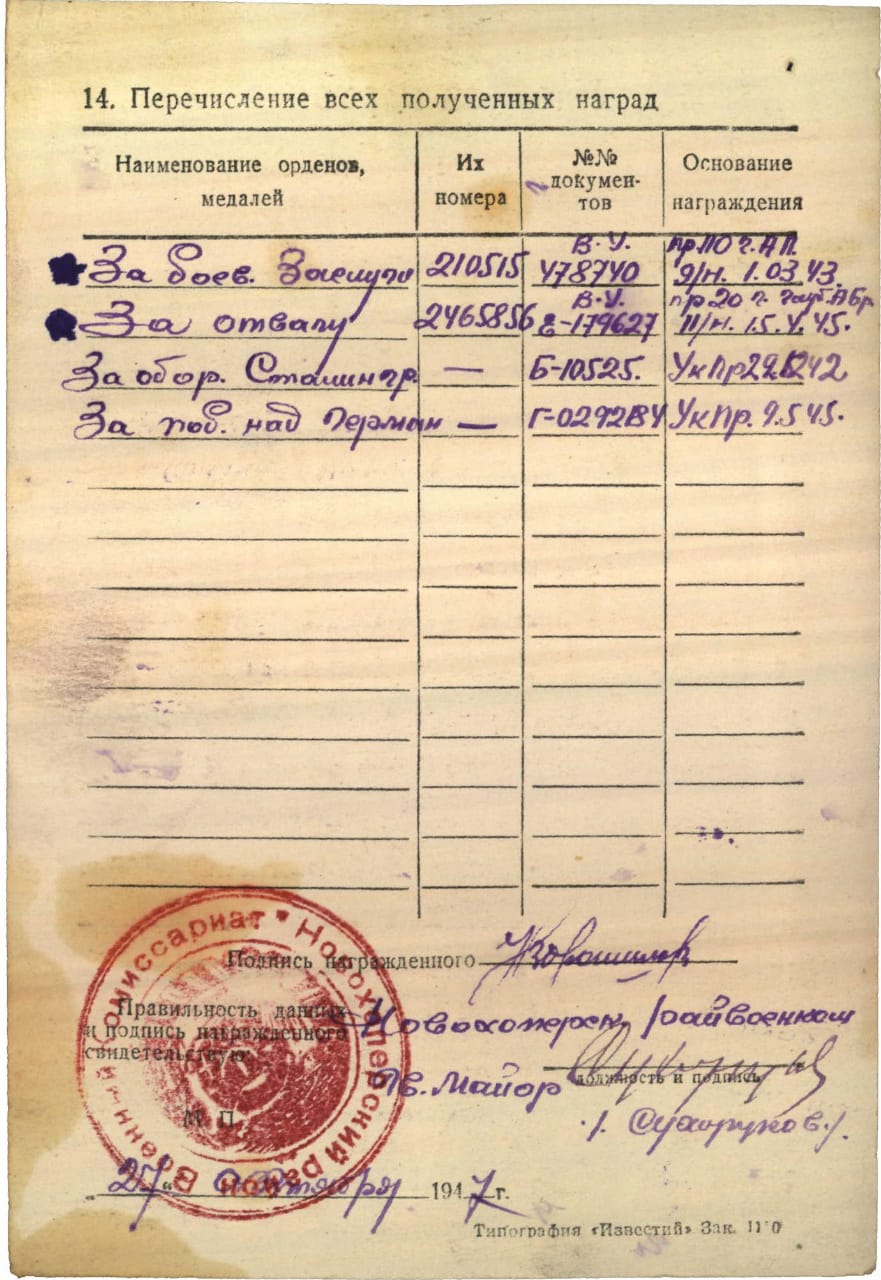 14. Перечисление всех полученных наград
Наименование орденов, медалей
Их номера
№№ документов
Основание награждения
В. У. пр. 10 г. А П.
За боев. Заслуги 210515 478740 Я/н. 1.03.43.
В. У. пр 20 г. АБр
За отвагу 2465856 Е-179627 П/н. 15.V.45.
За обор. Сталингр. — Б-10525. Ук Пр 22.12 42
За поб. над Герман — Г-0292134 Ук Пр. 9.5 45.
Подпись награжденного
Правильность данных
и подпись награжденного
свидетельствую:
Новохоперск райвоенком
Гв. Майор
должность и подпись
/. Сухоруков./.
М. П.
"27" Октября 1947 г.
Военный Комиссариат * Новохоперский район
Типография «Известий» Зак. 1110